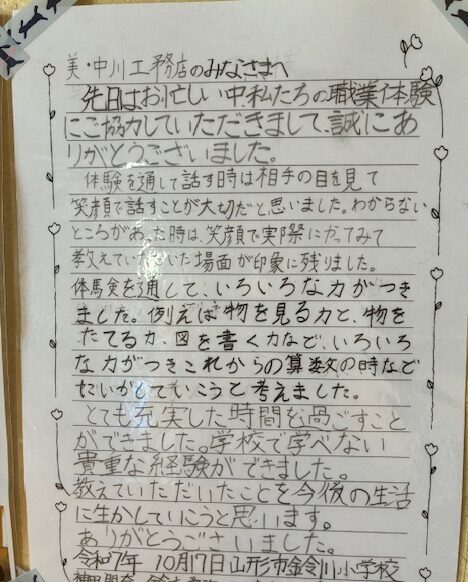 美・中川工務店のみなさまへ
先日はお忙しい中私たちの職業体験
にご協力していただきまして、誠にあ
りがとうございました。
体験を通して話す時は相手の目を見て
笑顔で話すことが大切だと思いました。わからない
ところがあった時は、笑顔で実際にやってみて
教えていただいた場面が印象に残りました。
体験を通して、いろいろな力がつき
ました。例えば物を見る力と、物を
たてる力、図を書く力など、いろいろ
な力がつきこれからの算数の時など
にいかしていこうと考えました。
とても充実した時間を過ごすこと
ができました。学校で学べない
貴重な経験ができました。
教えていただいたことを今後の生活
に生かしていこうと思います。
ありがとうございました。
令和7年 10月17日 山形市立鈴川小学校